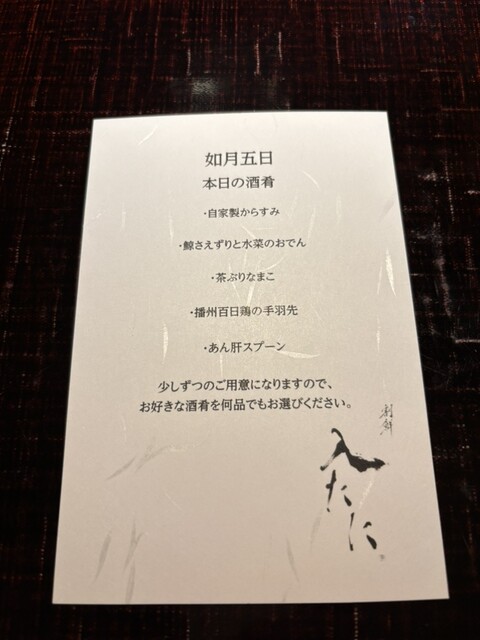 如月五日
本日の酒肴
・自家製からすみ
・鯨さえずりと水菜のおでん
・茶ぶりなまこ
・播州百日鶏の手羽先
・あん肝スプーン
少しずつのご用意になりますので、
お好きな酒肴を何品でもお選びください。
割鮮
入たに